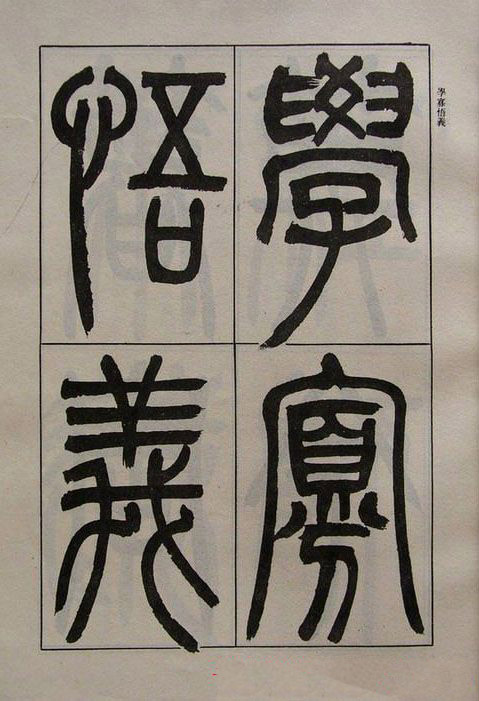 學寡悟義
學寡
悟義